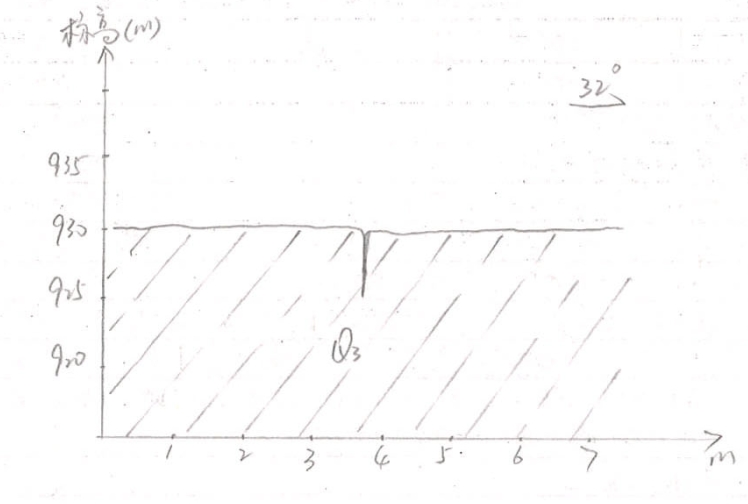 标高(m)
32°
935
930
925
920
Q₃
1 2 3 4 5 6 7 m